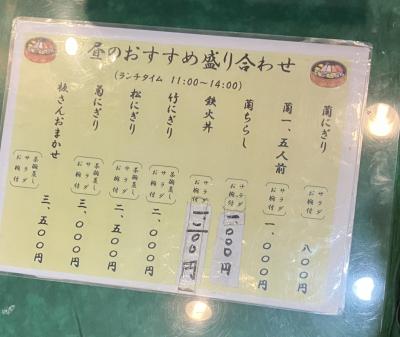 昼のおすすめ盛り合わせ
(ランチタイム 11:00〜14:00)
蘭にぎり
サラダ
お椀付
八〇〇円
蘭一、五人前
サラダ
お椀付
一、〇〇〇円
蘭ちらし
サラダ
お椀付
一、〇〇〇円
鉄火丼
サラダ
お椀付
竹にぎり
茶碗蒸し
サラダ
お椀付
二、〇〇〇円
松にぎり
茶碗蒸し
サラダ
お椀付
二、五〇〇円
菊にぎり
茶碗蒸し
サラダ
お椀付
三、〇〇〇円
板さんおまかせ
茶碗蒸し
サラダ
お椀付
三、五〇〇円